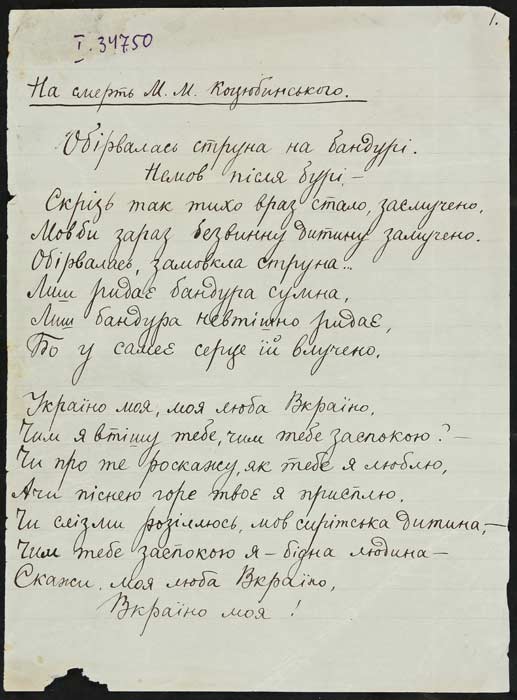 1.
I. 34750
На смерть М. М. Коцюбинського.
Обірвалась струна на бандурі.
Немов після бурі –
Скрізь так тихо враз стало, засмучено,
Мовби зараз безвинну дитину замучено.
Обірвалась, замовкла струна...
Лиш ридає бандура сумна,
Лиш бандура невтішно ридає,
Бо у самеє серце їй влучено.
Україно моя, моя люба Вкраїно,
Чим я втішу тебе, чим тебе заспокою? –
Чи про те роскажу, як тебе я люблю,
А чи піснею горе твоє я присплю,
Чи слізми розіллюсь, мов сирітська дитина, –
Чим тебе заспокою я – бідна людина –
Скажи, моя люба Вкраїно,
Вкраїно моя!